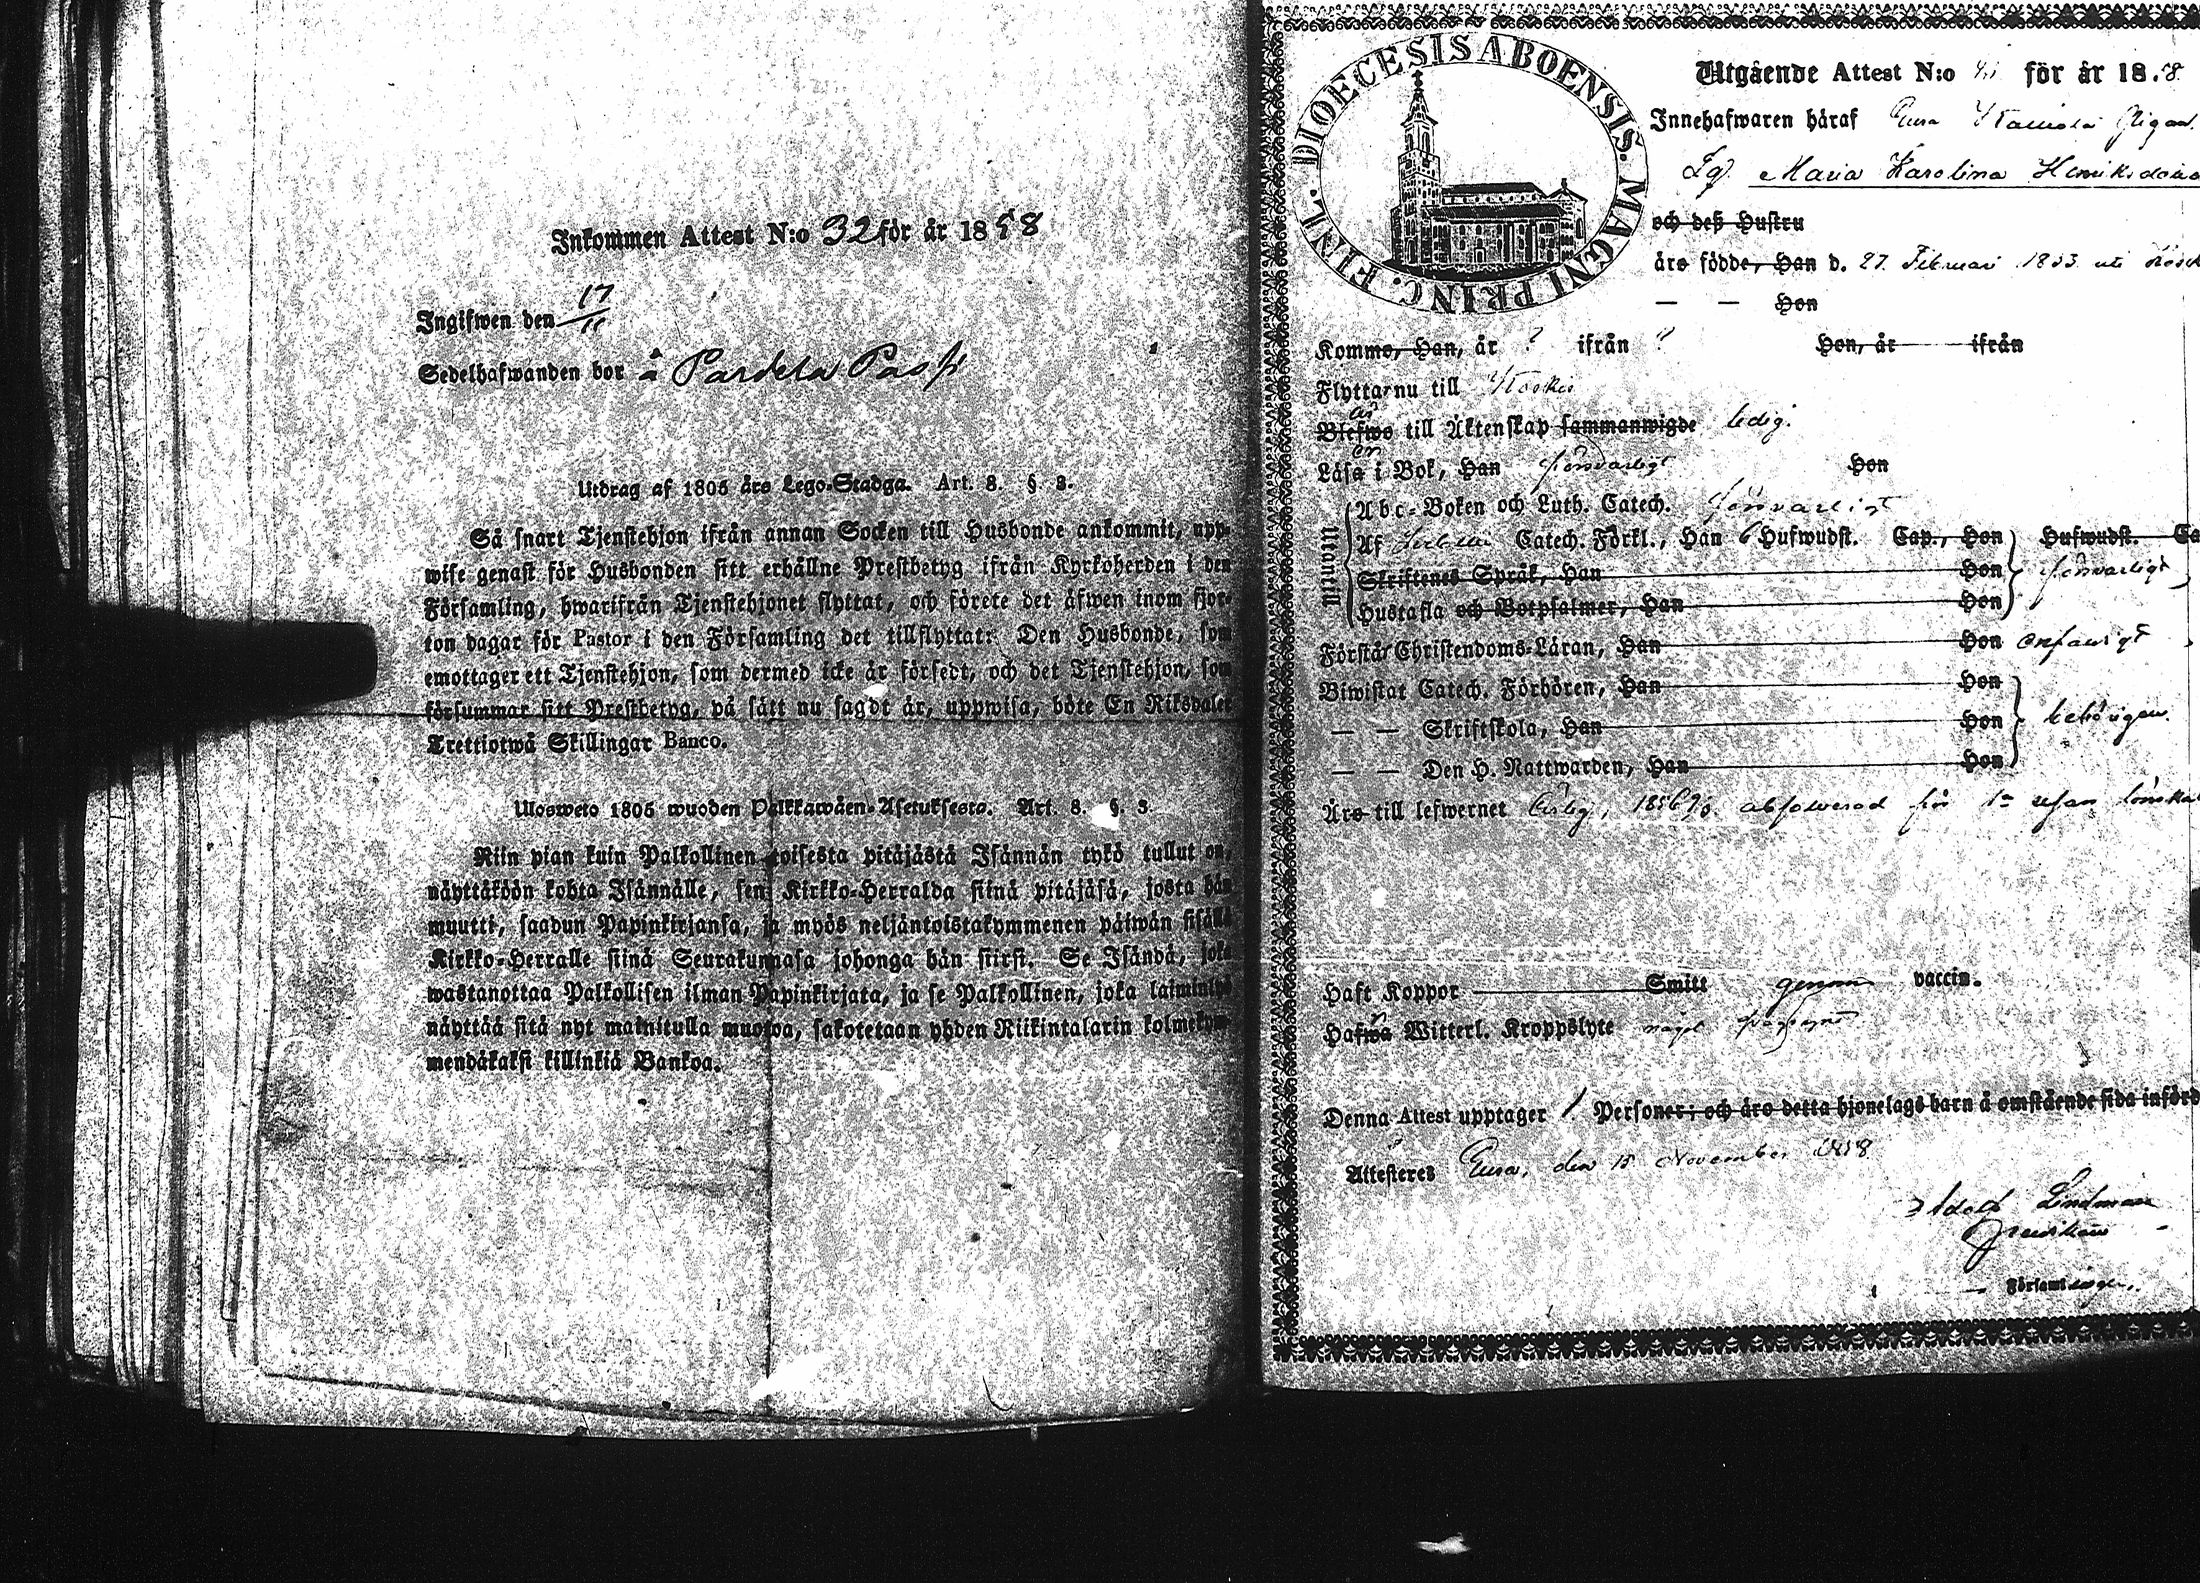 Inkommen Attest N:o 32 för år 1858
Ingifwen den 17/11
Sedelhafwanden bor å Pardela Pask
Utdrag af 1805 års Lego-Stadga. Art. 8. §. 3.
Så snart Tjenstehjon ifrån annan Socken till Husbonde ankommit, upp-
wise genast för Husbonden sitt erhållne Prestbetyg ifrån Kyrkoherden i den
Församling, hwarifrån Tjenstehjonet flyttat, och förete det äfwen inom fjor-
ton dagar för Pastor i den Församling det tillflyttat: Den Husbonde, som
emottager ett Tjenstehjon, som dermed icke är försedt, och det Tjenstehjon, som
försummar sitt Prestbetyg, på sätt nu sagdt är, uppwisa, böte En Riksdaler
Trettiotwå Skillingar Banco.
Ulosweto 1805 wuoden Palkkawäen-Asetuksesta. Art. 8. §. 3.
Niin pian kuin Palkollinen toisesta pitäjästä Isännän tykö tullut on,
näyttäköön kohta Isännälle, sen Kirkko-Herralda siinä pitäjäsä, josta hän
muutti, saadun Papinkirjansa, ja myös neljäntoistakymmenen päiwän sisällä
Kirkko-Herralle siinä Seurakunnasa johonga hän siirsi. Se Isändä, joka
wastanottaa Palkollisen ilman Papinkirjata, ja se Palkollinen, joka laiminlyö
näyttää sitä nyt mainitulla muotoa, sakotetaan yhden Riikintalarin kolmekym-
mendäkaksi killinkiä Bankoa.
DIOECESIS ABOENSIS. MAGNI PRINC. FINL.
Utgående Attest N:o för år 18.58
Innehafwaren häraf Eura
Maria Karolina Henriksdotter
och deß Hustru
äro födde, Han d. 27 Februari 1833 uti
— — Hon
Komme, Han, år ? ifrån ? Hon, år ifrån
Flyttar nu till
är
Blefwo till Äktenskap sammanwigde ledig.
er
Läsa i Bok, Han försvarligt Hon
Utantill
Abc-Boken och Luth. Catech. försvarligt
Af Catech. Förkl., Han 6 Hufwudst. Cap., Hon Hufwudst. Ca
Skriftenes Språk, Han Hon försvarligt
Hustafla och Botpsalmer, Han Hon
Förstår Christendoms-Läran, Han Hon enfaldigt
Biwistat Catech. Förhören, Han Hon
— — Skriftskola, Han Hon behörigen.
— — Den H. Nattwarden, Han Hon
Äro till lefwernet
Haft Koppor Smitt genom vaccin.
Hafwa Witterl. Kroppslyte
Denna Attest upptager 1 Personer; och äro detta hjonelags barn å omstående sida införd
Attesteres Eura, den 15 November 1858
Adolf Lindman
Församlingen.